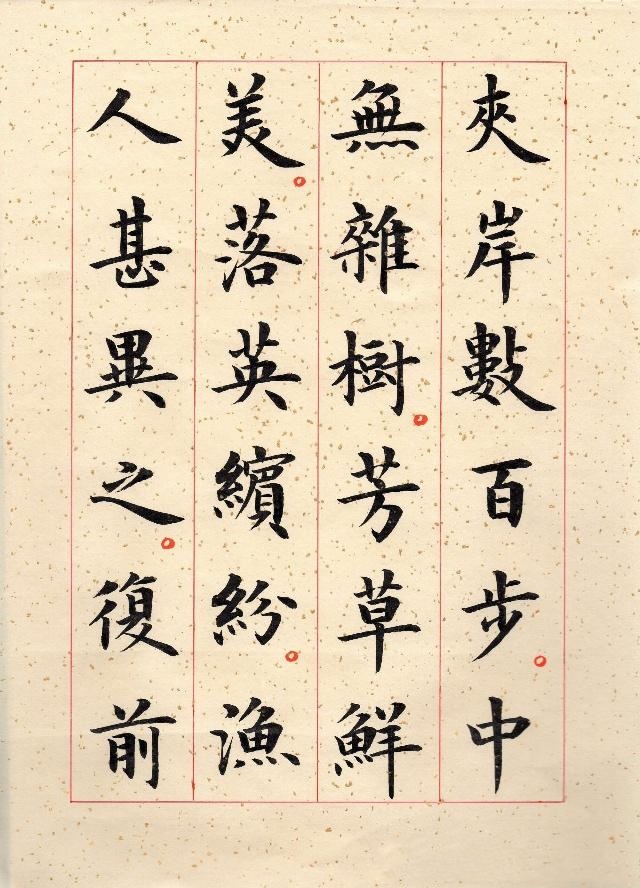 夾岸數百步。中
無雜樹。芳草鮮
美。落英繽紛。漁
人甚異之。復前